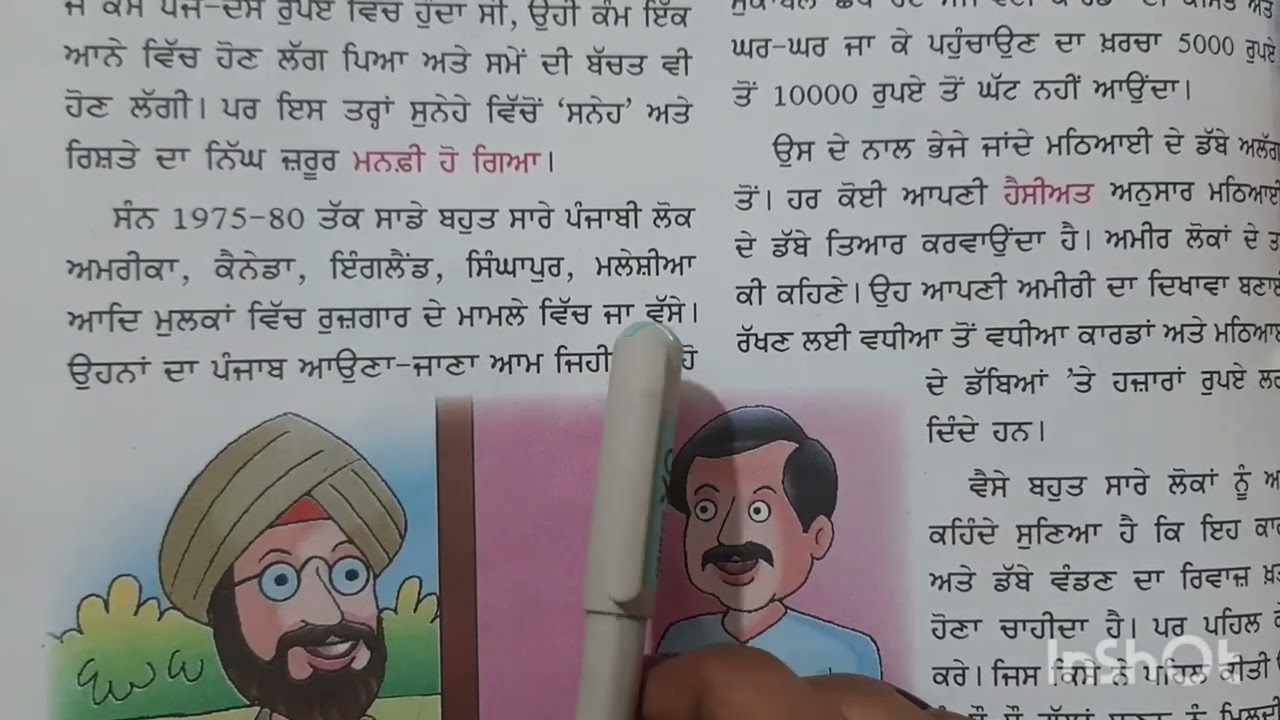 ਜੋ ਕੰਮ ਪੰਜ-ਦਸ ਰੁਪਏ ਵਿੱਚ ਹੁੰਦਾ ਸੀ, ਉਹੀ ਕੰਮ ਇੱਕ
ਆਨੇ ਵਿੱਚ ਹੋਣ ਲੱਗ ਪਿਆ ਅਤੇ ਸਮੇਂ ਦੀ ਬੱਚਤ ਵੀ
ਹੋਣ ਲੱਗੀ। ਪਰ ਇਸ ਤਰ੍ਹਾਂ ਸੁਨੇਹੇ ਵਿੱਚੋਂ ‘ਸਨੇਹ’ ਅਤੇ
ਰਿਸ਼ਤੇ ਦਾ ਨਿੱਘ ਜ਼ਰੂਰ ਮਨਫ਼ੀ ਹੋ ਗਿਆ।
ਸੰਨ 1975-80 ਤੱਕ ਸਾਡੇ ਬਹੁਤ ਸਾਰੇ ਪੰਜਾਬੀ ਲੋਕ
ਅਮਰੀਕਾ, ਕੈਨੇਡਾ, ਇੰਗਲੈਂਡ, ਸਿੰਘਾਪੁਰ, ਮਲੇਸ਼ੀਆ
ਆਦਿ ਮੁਲਕਾਂ ਵਿੱਚ ਰੁਜ਼ਗਾਰ ਦੇ ਮਾਮਲੇ ਵਿੱਚ ਜਾ ਵੱਸੇ।
ਉਹਨਾਂ ਦਾ ਪੰਜਾਬ ਆਉਣਾ-ਜਾਣਾ ਆਮ ਜਿਹੀ ਹੋ
ਘਰ-ਘਰ ਜਾ ਕੇ ਪਹੁੰਚਾਉਣ ਦਾ ਖ਼ਰਚਾ 5000 ਰੁਪਏ
ਤੋਂ 10000 ਰੁਪਏ ਤੋਂ ਘੱਟ ਨਹੀਂ ਆਉਂਦਾ।
ਉਸ ਦੇ ਨਾਲ ਭੇਜੇ ਜਾਂਦੇ ਮਠਿਆਈ ਦੇ ਡੱਬੇ ਅਲੱਗ
ਤੋਂ। ਹਰ ਕੋਈ ਆਪਣੀ ਹੈਸੀਅਤ ਅਨੁਸਾਰ ਮਠਿਆਈ
ਦੇ ਡੱਬੇ ਤਿਆਰ ਕਰਵਾਉਂਦਾ ਹੈ। ਅਮੀਰ ਲੋਕਾਂ ਦੇ
ਕੀ ਕਹਿਣੇ। ਉਹ ਆਪਣੀ ਅਮੀਰੀ ਦਾ ਦਿਖਾਵਾ ਬਣਾਈ
ਰੱਖਣ ਲਈ ਵਧੀਆ ਤੋਂ ਵਧੀਆ ਕਾਰਡਾਂ ਅਤੇ
ਦੇ ਡੱਬਿਆਂ ’ਤੇ ਹਜ਼ਾਰਾਂ ਰੁਪਏ
ਦਿੰਦੇ ਹਨ।
ਵੈਸੇ ਬਹੁਤ ਸਾਰੇ ਲੋਕਾਂ ਨੂੰ
ਕਹਿੰਦੇ ਸੁਣਿਆ ਹੈ ਕਿ ਇਹ
ਅਤੇ ਡੱਬੇ ਵੰਡਣ ਦਾ ਰਿਵਾਜ਼
ਹੋਣਾ ਚਾਹੀਦਾ ਹੈ। ਪਰ ਪਹਿਲ
ਕਰੇ। ਜਿਸ ਕਿਸੇ ਨੇ ਪਹਿਲ ਕੀਤੀ
InShOt